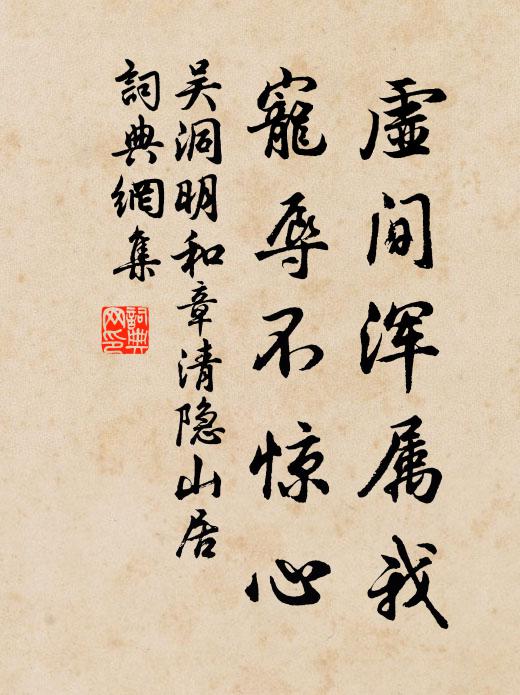 虚间浑属我
寵辱不惊心
吴洞明和章清隐山居
詞典網集
詞典网印